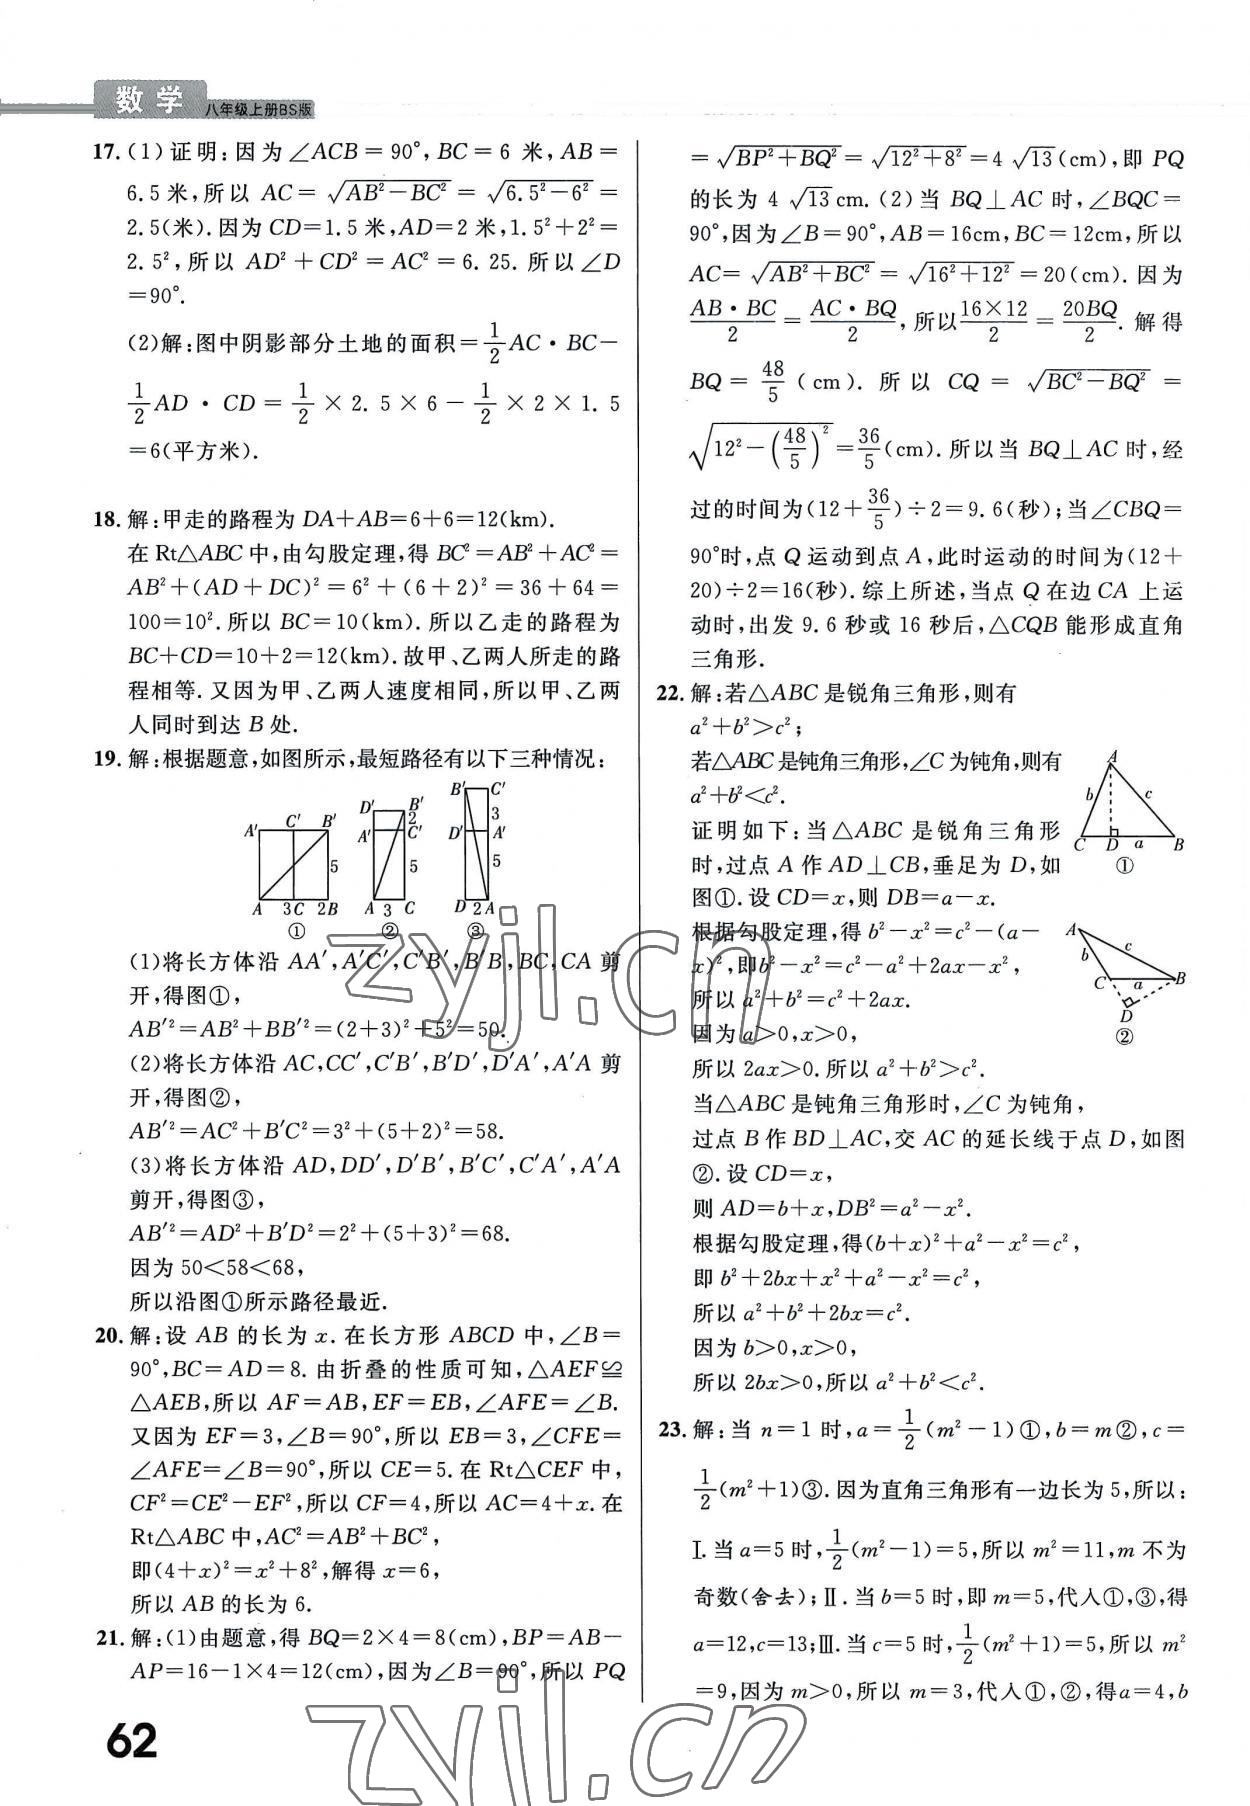 数学
八年级上册BS版
17. (1)证明:因为∠ACB=90°,BC=6 米,AB=
6.5米,所以 AC=√(AB²-BC²)=√(6.5²-6²)=
2.5(米).因为CD=1.5米,AD=2米,1.5²+2²=
2.5²,所以 AD²+CD²=AC²=6.25.所以∠D
=90°.
(2)解:图中阴影部分土地的面积=1/2 AC·BC-
1/2 AD·CD=1/2×2.5×6-1/2×2×1.5
=6(平方米).
18. 解:甲走的路程为 DA+AB=6+6=12(km).
在 Rt△ABC中,由勾股定理,得 BC²=AB²+AC²=
AB²+(AD+DC)²=6²+(6+2)²=36+64=
100=10².所以 BC=10(km).所以乙走的路程为
BC+CD=10+2=12(km).故甲、乙两人所走的路
程相等.又因为甲、乙两人速度相同,所以甲、乙两
人同时到达 B 处.
19. 解:根据题意,如图所示,最短路径有以下三种情况:
A′ C′ B′ 5 A 3C 2B ①
D′ B′ 2 A′ C′ 5 A 3 C ②
B′ C′ 3 D′ A′ 5 D 2A ③
(1)将长方体沿 AA′,A′C′,C′B′,B′B,BC,CA 剪
开,得图①,
AB′²=AB²+BB′²=(2+3)²+5²=50.
(2)将长方体沿 AC,CC′,C′B′,B′D′,D′A′,A′A 剪
开,得图②,
AB′²=AC²+B′C²=3²+(5+2)²=58.
(3)将长方体沿 AD,DD′,D′B′,B′C′,C′A′,A′A
剪开,得图③,
AB′²=AD²+B′D²=2²+(5+3)²=68.
因为 50<58<68,
所以沿图①所示路径最近.
20. 解:设 AB 的长为 x.在长方形 ABCD 中,∠B=
90°,BC=AD=8.由折叠的性质可知,△AEF≌
△AEB,所以 AF=AB,EF=EB,∠AFE=∠B.
又因为 EF=3,∠B=90°,所以 EB=3,∠CFE=
∠AFE=∠B=90°,所以 CE=5.在 Rt△CEF 中,
CF²=CE²-EF²,所以 CF=4,所以 AC=4+x.在
Rt△ABC 中,AC²=AB²+BC²,
即(4+x)²=x²+8²,解得 x=6,
所以 AB 的长为 6.
21. 解:(1)由题意,得 BQ=2×4=8(cm),BP=AB-
AP=16-1×4=12(cm),因为∠B=90°,所以 PQ
=√(BP²+BQ²)=√(12²+8²)=4√13(cm),即 PQ
的长为 4√13cm.(2)当 BQ⊥AC 时,∠BQC=
90°,因为∠B=90°,AB=16cm,BC=12cm,所以
AC=√(AB²+BC²)=√(16²+12²)=20(cm).因为
AB·BC/2=AC·BQ/2,所以16×12/2=20BQ/2.解得
BQ=48/5(cm).所以 CQ=√(BC²-BQ²)=
√(12²-(48/5)²)=36/5(cm).所以当 BQ⊥AC 时,经
过的时间为(12+36/5)÷2=9.6(秒);当∠CBQ=
90°时,点 Q 运动到点 A,此时运动的时间为(12+
20)÷2=16(秒).综上所述,当点 Q 在边CA 上运
动时,出发 9.6 秒或 16 秒后,△CQB 能形成直角
三角形.
22. 解:若△ABC是锐角三角形,则有
a²+b²>c²;
若△ABC是钝角三角形,∠C为钝角,则有
a²+b²<c².
证明如下:当△ABC 是锐角三角形
时,过点 A 作 AD⊥CB,垂足为 D,如
图①.设 CD=x,则 DB=a-x.
A b c C D a B ①
根据勾股定理,得 b²-x²=c²-(a-
x)²,即b²-x²=c²-a²+2ax-x²,
所以 a²+b²=c²+2ax.
因为 a>0,x>0,
A c b C a B D ②
所以 2ax>0.所以 a²+b²>c².
当△ABC 是钝角三角形时,∠C 为钝角,
过点 B 作 BD⊥AC,交 AC 的延长线于点 D,如图
②.设 CD=x,
则 AD=b+x,DB²=a²-x².
根据勾股定理,得(b+x)²+a²-x²=c²,
即 b²+2bx+x²+a²-x²=c²,
所以 a²+b²+2bx=c².
因为 b>0,x>0,
所以 2bx>0,所以 a²+b²<c².
23. 解:当 n=1 时,a=1/2(m²-1)①,b=m②,c=
1/2(m²+1)③.因为直角三角形有一边长为 5,所以:
Ⅰ.当 a=5 时,1/2(m²-1)=5,所以 m²=11,m 不为
奇数(舍去);Ⅱ.当 b=5 时,即 m=5,代入①,③,得
a=12,c=13;Ⅲ.当 c=5 时,1/2(m²+1)=5,所以 m²
=9,因为 m>0,所以 m=3,代入①,②,得a=4,b
62
zyjl.cn
zyjl.cn